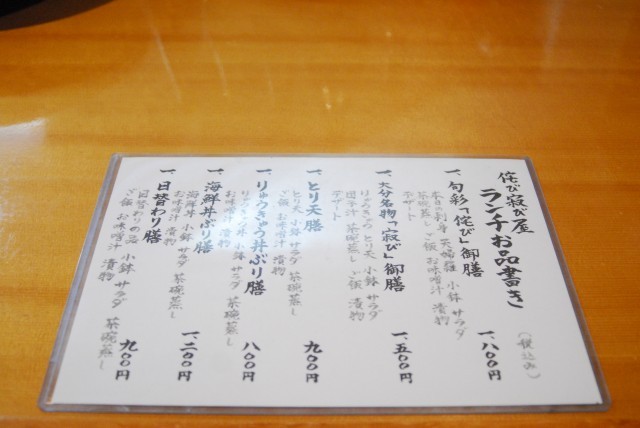 侘び寂び屋
ランチお品書き
(税込み)
一、旬彩「侘び」御膳 一、八〇〇円
本日の刺身 天婦羅 小鉢 サラダ
茶碗蒸し ご飯 お味噌汁 漬物
デザート
一、大分名物「寂び」御膳 一、五〇〇円
りゅうきゅう とり天 小鉢 サラダ
団子汁 茶碗蒸し ご飯 漬物
デザート
一、とり天膳 九〇〇円
とり天 小鉢 サラダ 茶碗蒸し
ご飯 お味噌汁 漬物
一、りゅうきゅう丼ぶり膳 八〇〇円
りゅうきゅう丼 小鉢 サラダ 茶碗蒸し
お味噌汁 漬物
一、海鮮丼ぶり膳 一、二〇〇円
海鮮丼 小鉢 サラダ 茶碗蒸し
お味噌汁 漬物
一、日替わり膳 九〇〇円
日替わりの品 小鉢 サラダ 茶碗蒸し
ご飯 お味噌汁 漬物